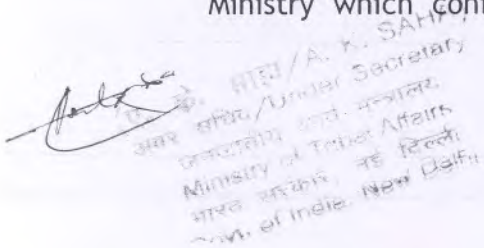 Ministry which
साहू/A. K. SAHU
अवर सचिव/Under Secretary
जनजातीय कार्य मन्त्रालय
Ministry of Tribal Affairs
भारत सरकार, नई दिल्ली
Govt. of India, New Delhi